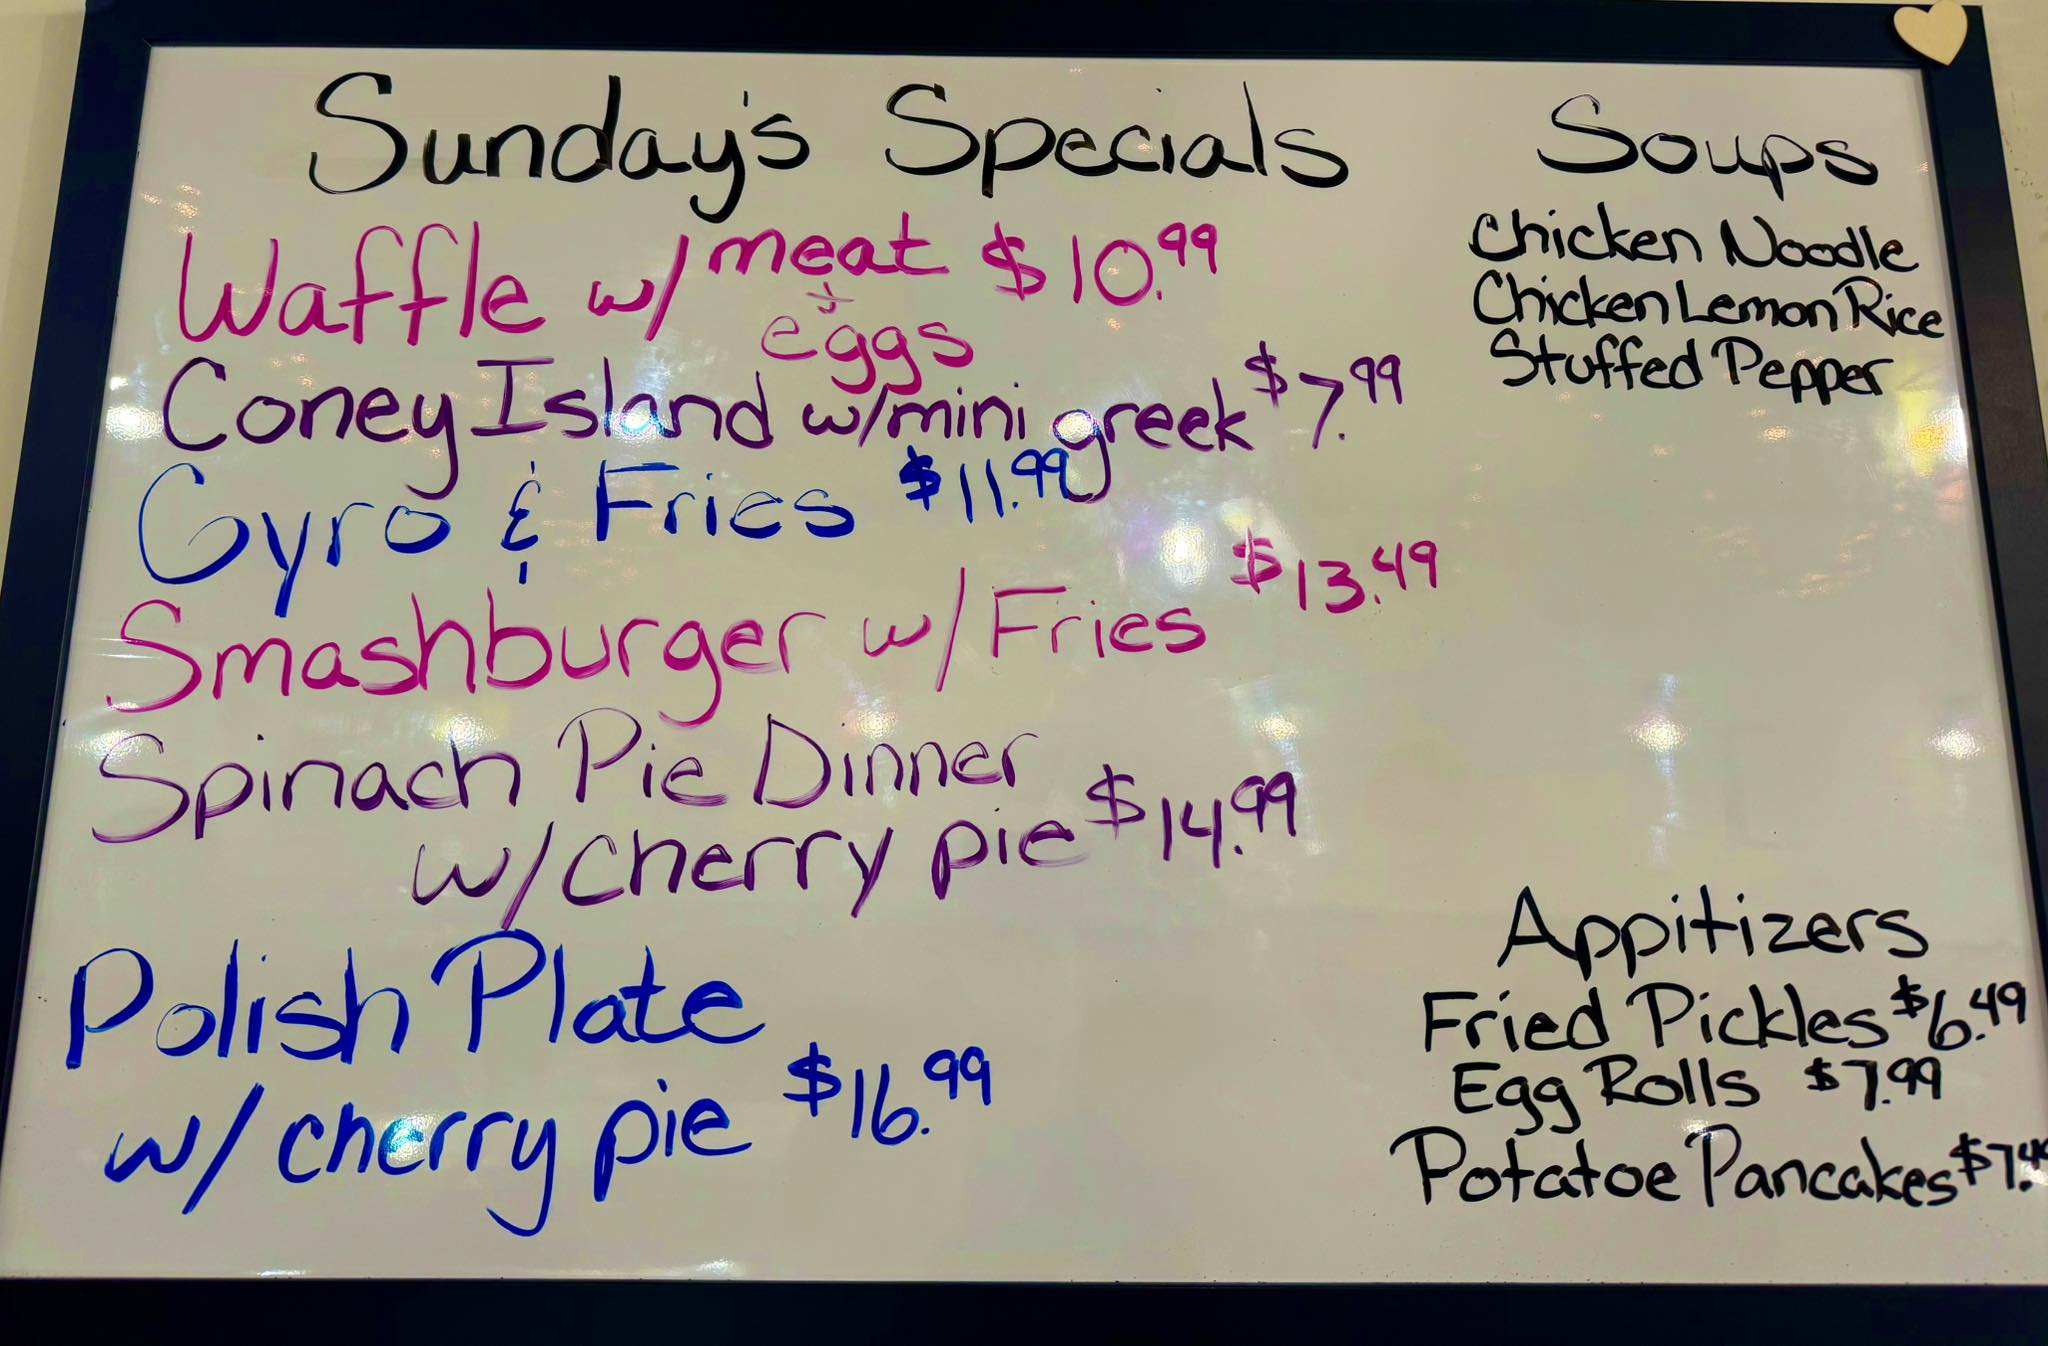 Sunday's Specials
Waffle w/ meat + eggs $10.99
Coney Island w/mini greek $7.99
Gyro & Fries $11.99
Smashburger w/ Fries $13.49
Spinach Pie Dinner
w/cherry pie $14.99
Polish Plate
w/ cherry pie $16.99
Soups
Chicken Noodle
Chicken Lemon Rice
Stuffed Pepper
Appitizers
Fried Pickles $6.49
Egg Rolls $7.99
Potatoe Pancakes